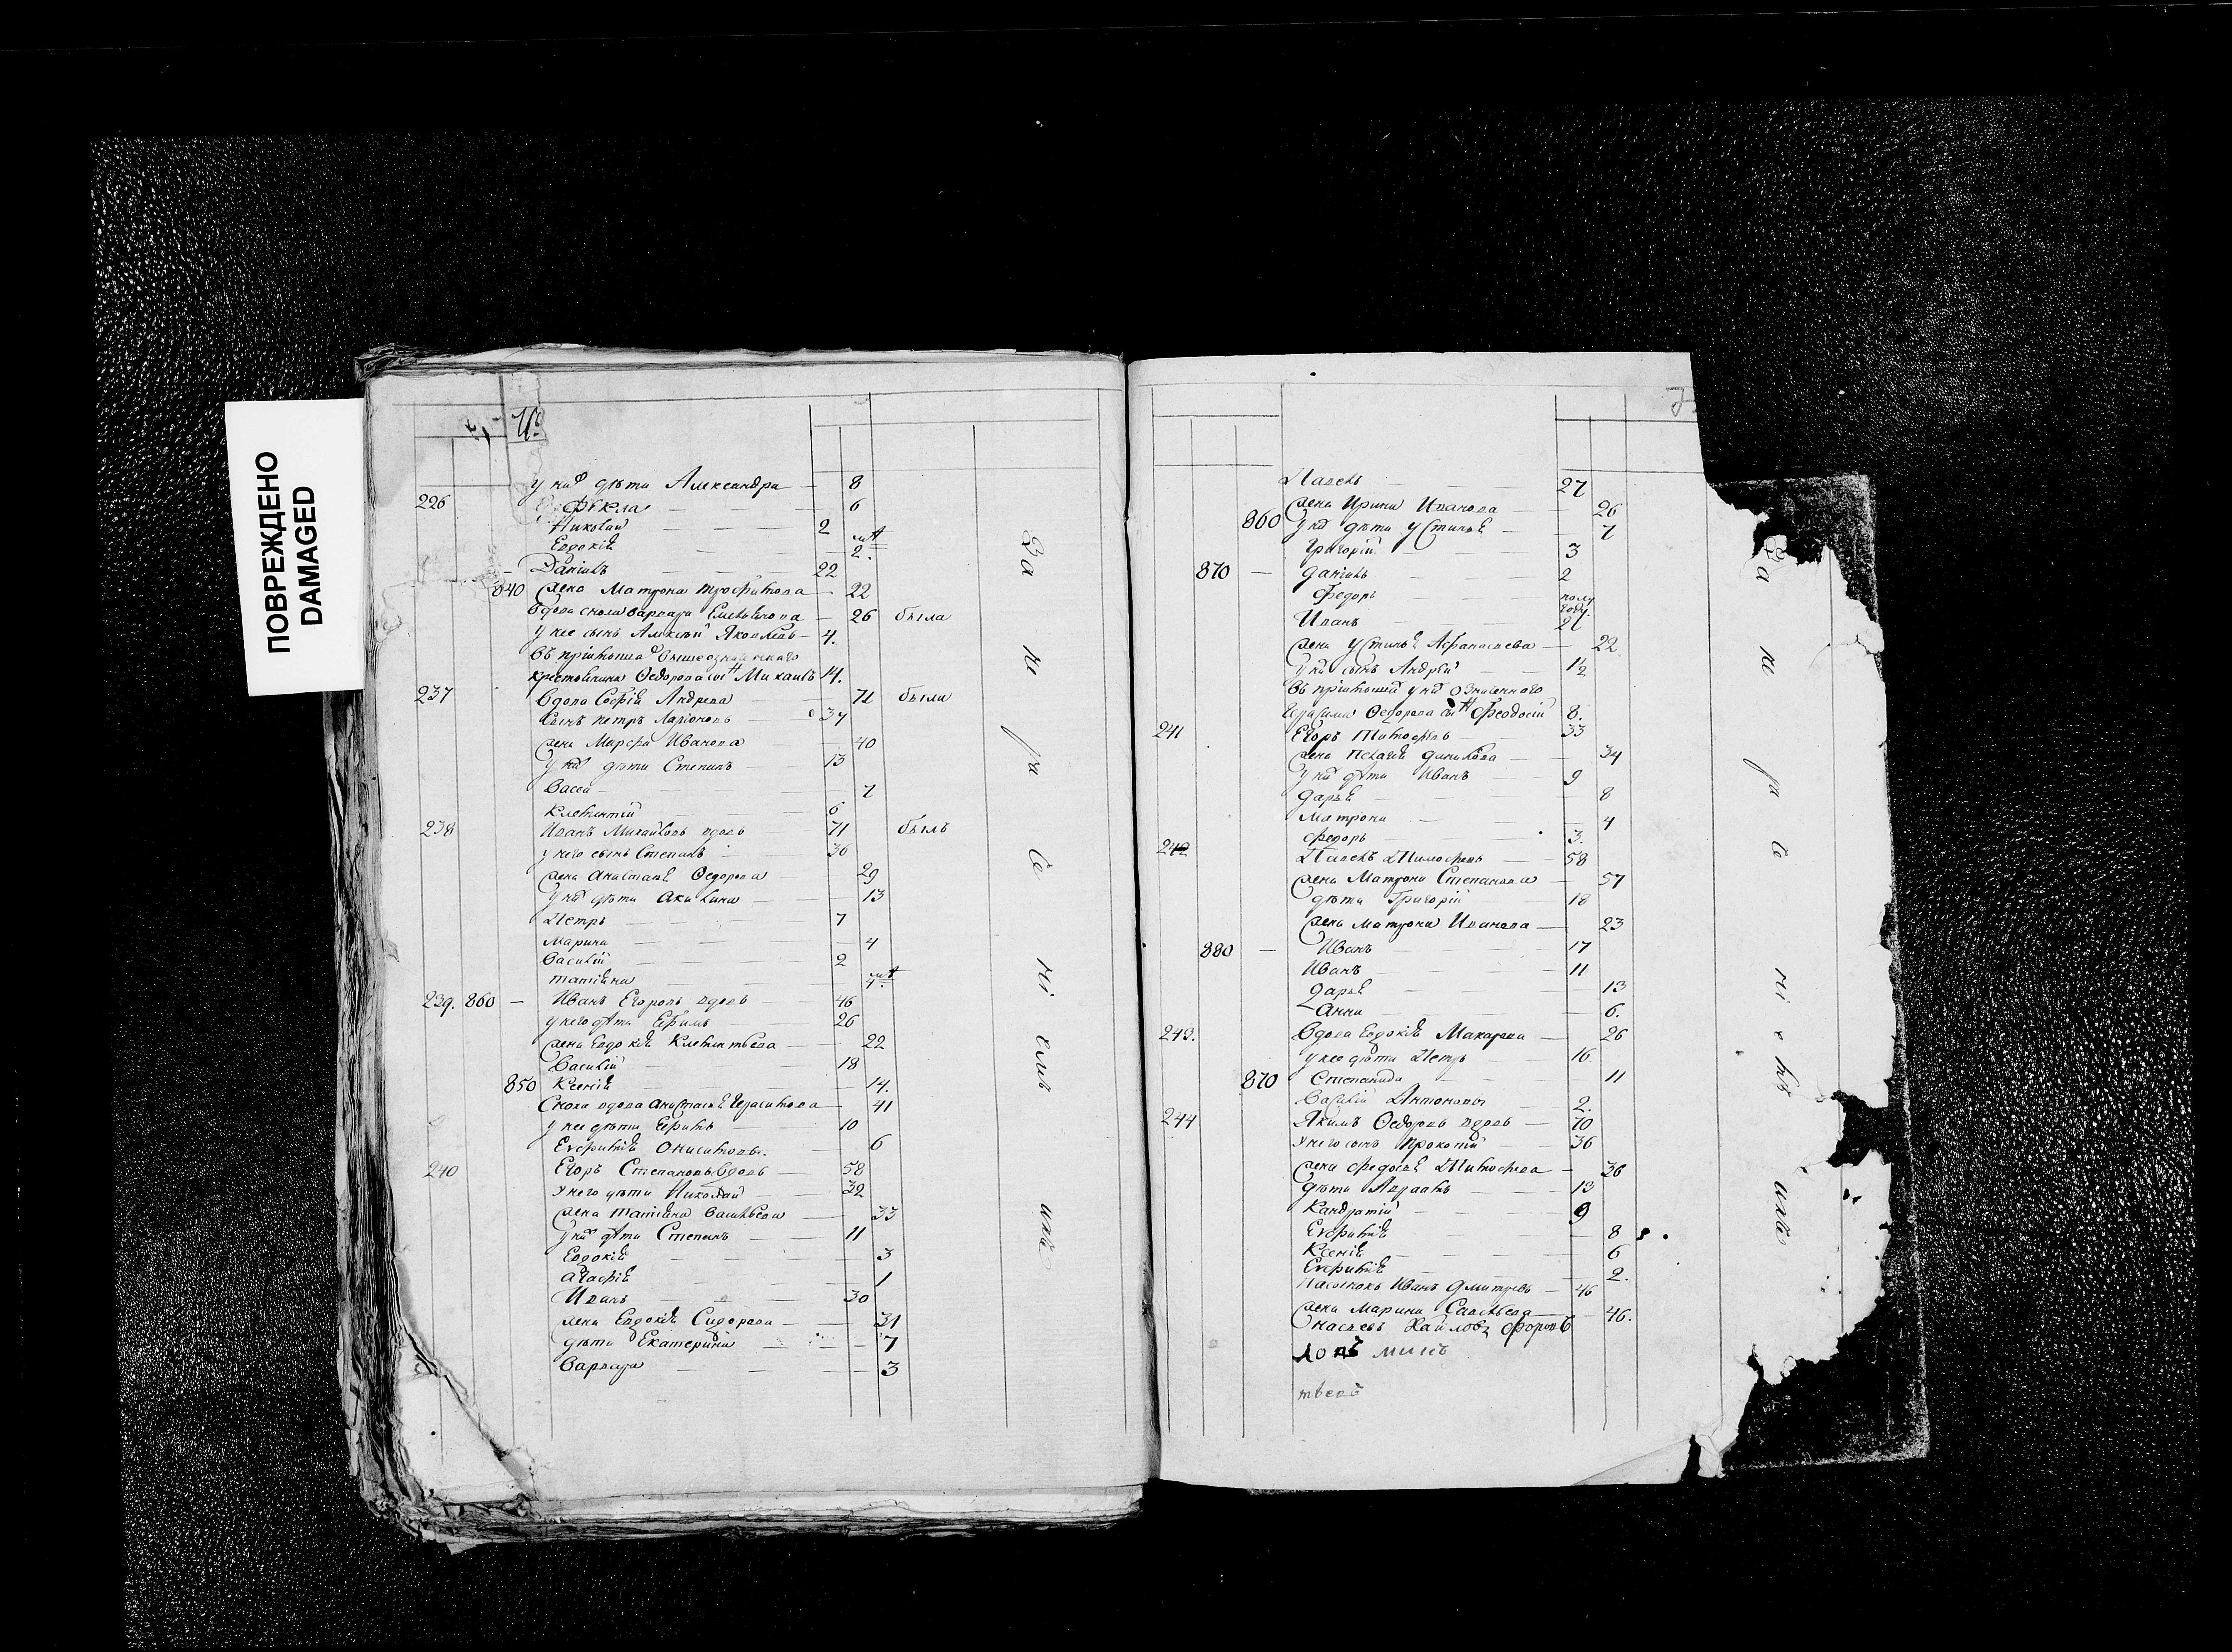 ПОВРЕЖДЕНО
DAMAGED
у них дѣти Александра — 8
226 Фекла — 6
Николай — 2
Евдокія — 2.
Данiилъ — 22
840 жена Матрона Трофимова — 22
вдова сноха Варвара Емельянова — 26 была
у нее сынъ Алексѣй Яковлевъ — 4.
въ прiимышахъ
крестьянина Ѳедорова сынъ Михаилъ 14.
237 вдова Софiя Андреева — 71 были
сынъ Петръ Ларiоновъ 37
жена Марфа Иванова — 40
у них дѣти Степанъ — 13
Васса — 7
Климентiй — 6
238 Иванъ Михайловъ вдовъ — 71 былъ
у него сынъ Степанъ — 36
жена Анастасiя Ѳедорова — 29
у них дѣти Акилина — 13
Петръ — 7
Марина — 4
Василiй — 2
Татiана —
239. 860 — Иванъ Егоровъ вдовъ — 46
у него дѣти Ефимъ — 26
жена Евдокiя Климентьева — 22
Василiй — 18
850 Ксенiя — 14.
Сноха вдова Анастасiя Герасимова — 41
у нее дѣти Ефимъ — 10
Евфимiя Онисимовы. — 6
240 Егоръ Степановъ вдовъ — 58
у него дѣти Николай — 32
жена Татiана Васильева — 33
у них дѣти Степанъ — 11
Евдокiя — 3
Агафiя — 1
Иванъ — 30
жена Евдокiя Сидорова — 31
дѣти Екатерина — 7
Варвара — 3
Павелъ — 27
жена Ирина Иванова — 26
860 у них дѣти Устинья — 7
Григорiй — 3
870 — Данiилъ — 2
Федоръ — полу году.
Иванъ — 21
жена Устинья Афанасьева — 22
у них сынъ Андрей — 1½
въ прiимышахъ у них
Герасима Ѳедорова сынъ Феодосiй 8.
241 Егоръ Тимофеевъ — 33
жена Пелагея Данилова — 34
у них дѣти Иванъ — 9
Дарья — 8
Матрона — 4
Федоръ — 3.
242 Павелъ Тимофеевъ — 58
жена Матрона Степанова — 57
дѣти Григорiй — 18
жена Матрона Иванова — 23
880 — Иванъ — 17
Иванъ — 11
Дарья — 13
Анна — 6.
243. Вдова Евдокiя Макарова — 26
у нее дѣти Петръ — 16.
870 Степанида — 11
Василiй Антоновы — 2.
244 Якимъ Ѳедоровъ вдовъ — 70
у него сынъ Прокопiй — 36
жена Федосья Тимофеева — 36
дѣти Авраамъ — 13
Кандратiй — 9
Евфимiя — 8
Ксенiя — 6
Евфимiя — 2.
Пасынокъ Иванъ Дмитревъ — 46
жена Марина Савельева — 46.